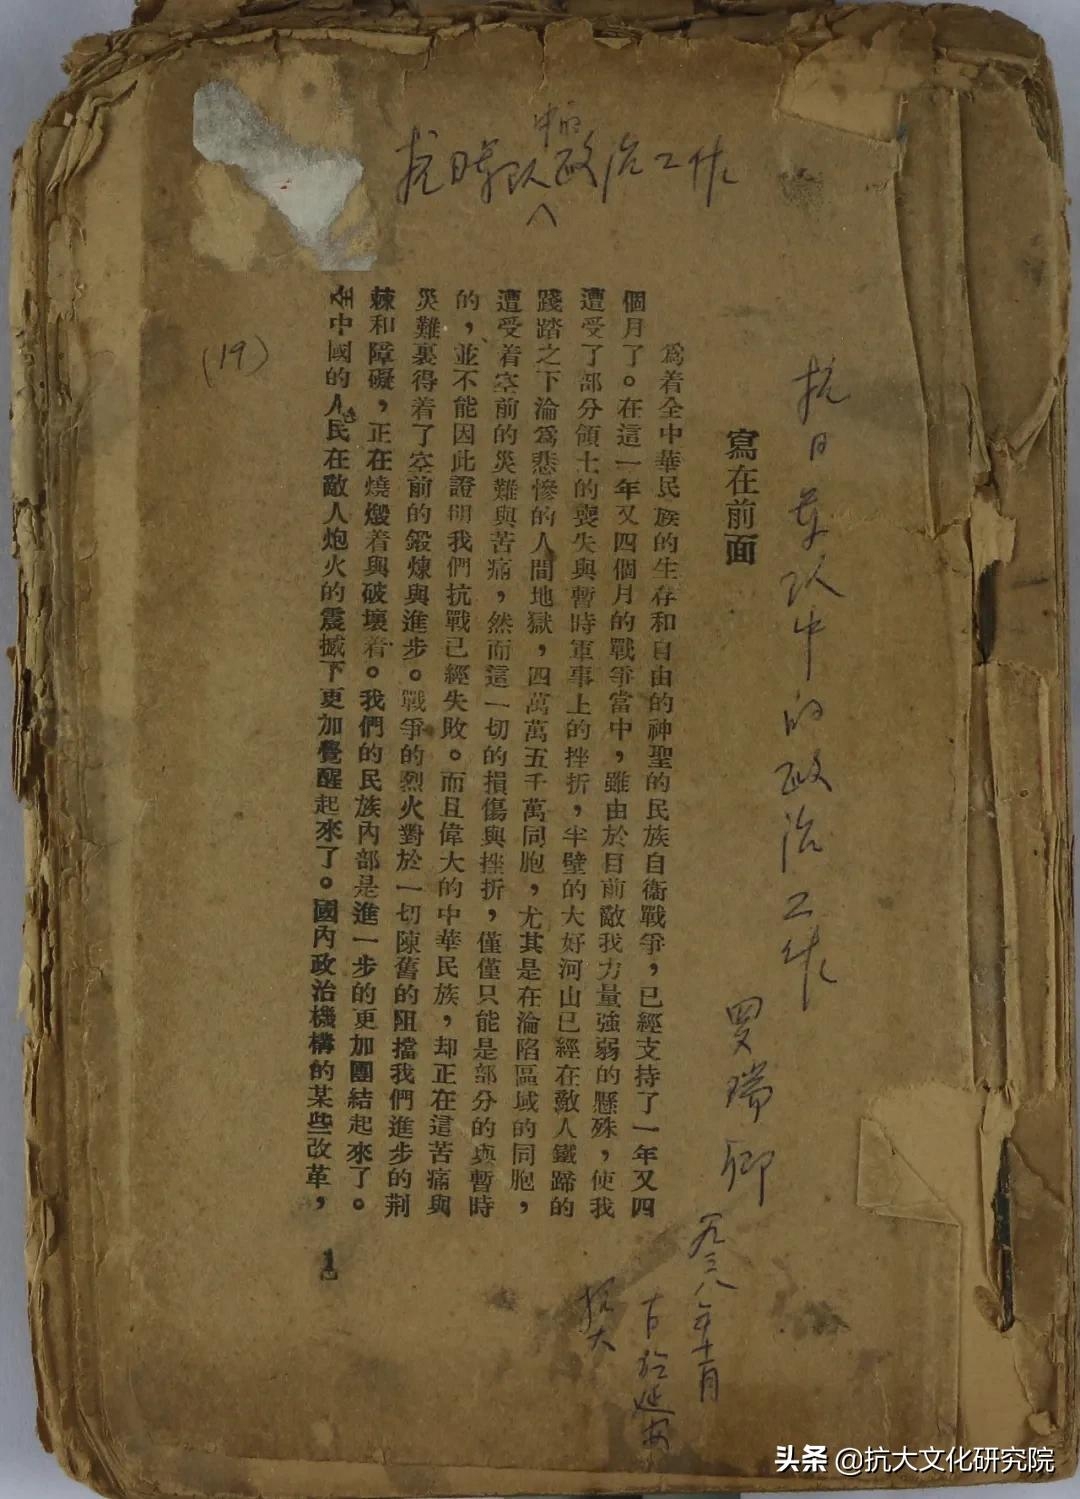 抗日軍队中的政治工作
抗日军队中的政治工作
罗瑞卿
一九三八年十一月
于延安
抗大
寫在前面
爲着全中華民族的生存和自由的神聖的民族自衞戰爭，已經支持了一年又四
個月了。在這一年又四個月的戰爭當中，雖由於目前敵我力量強弱的懸殊，使我
遭受了部分領土的喪失與暫時軍事上的挫折，半壁的大好河山已經在敵人鐵蹄的
踐踏之下淪爲悲慘的人間地獄，四萬萬五千萬同胞，尤其是在淪陷區域的同胞，
遭受着空前的災難與苦痛，然而這一切的損傷與挫折，僅僅只能是部分的與暫時
的，並不能因此證明我們抗戰已經失敗。而且偉大的中華民族，却正在這苦痛與
災難裏得着了空前的鍛煉與進步。戰爭的烈火對於一切陳舊的阻擋我們進步的荆
棘和障礙，正在燒燬着與破壞着。我們的民族內部是進一步的更加團結起來了。
全中國的人民在敵人炮火的震撼下更加覺醒起來了。國內政治機構的某些改革，
(19)
1
头条 @抗大文化研究院